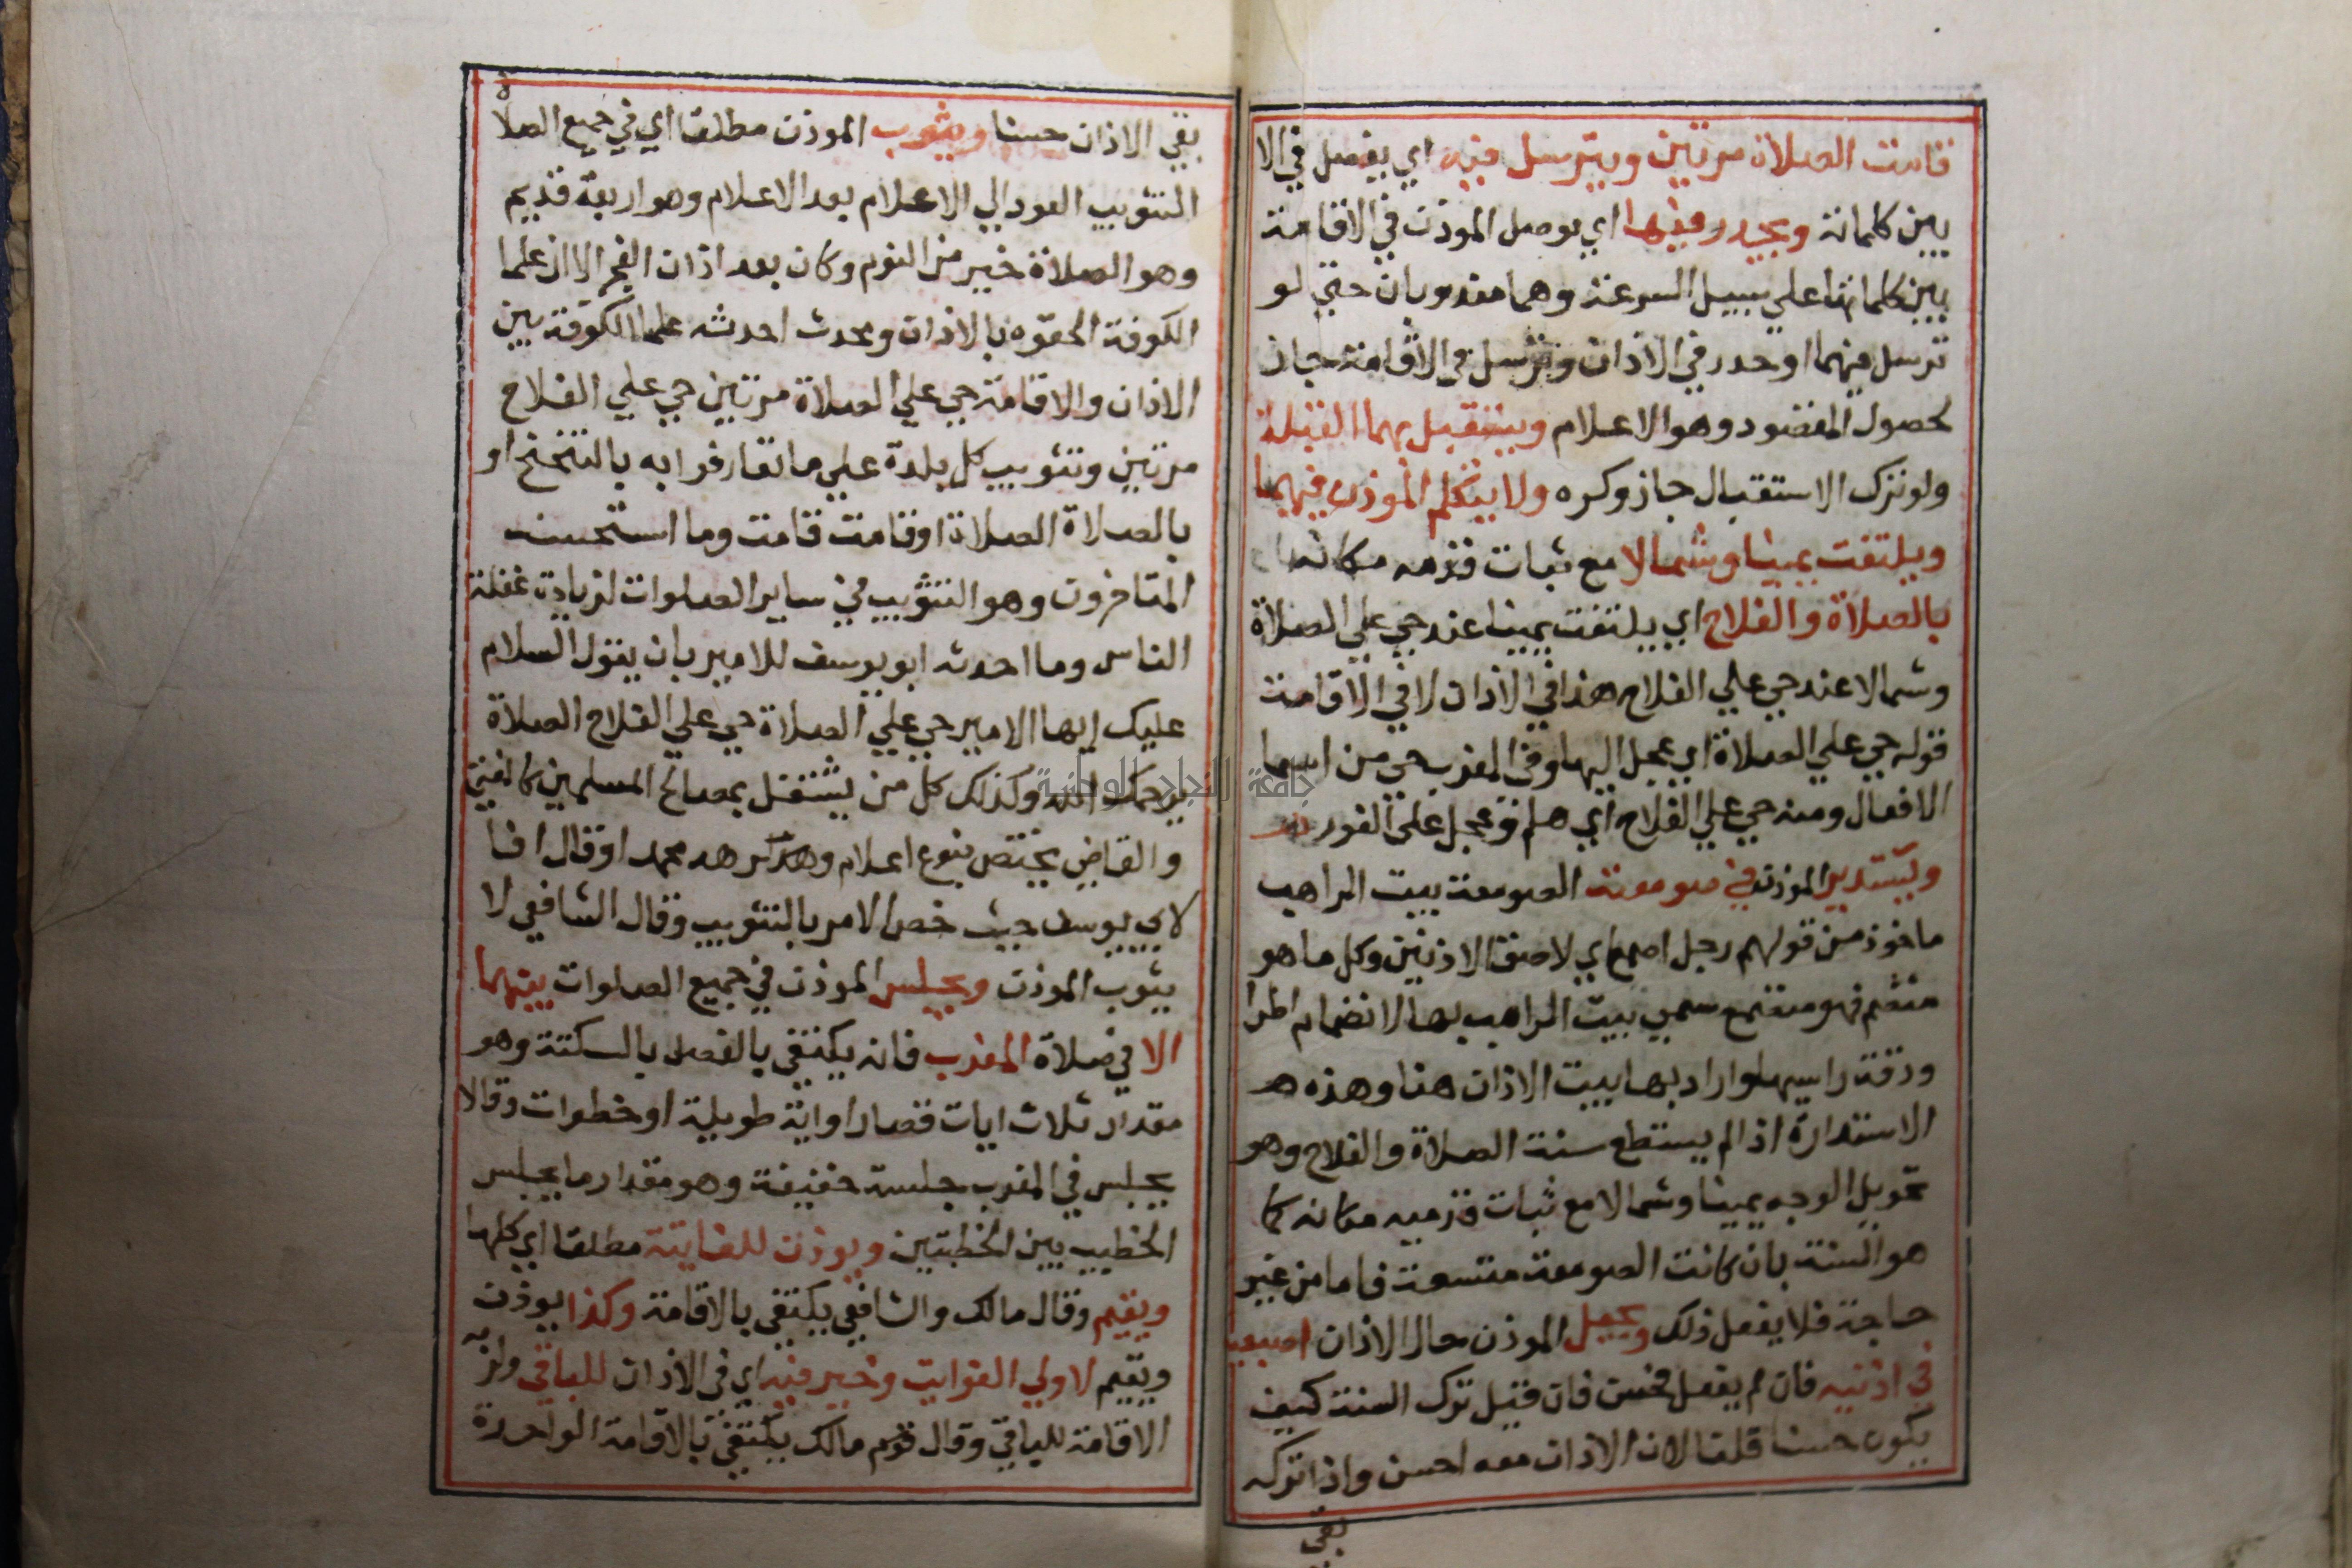 قامت الصلاة مرتين ويترسل فيه اي يفصل في الا
بين كلماته ويحدر فيها اي يوصل الموذن في الاقامة
بين كلماتها علي سبيل السرعة وهما مندوبان حتي لو
ترسل فيهما او حدر في الاذان وترسل في الاقامة جاز
لحصول المقصود وهو الاعلام ويستقبل بهما القبلة
ولو ترك الاستقبال جاز وكره ولا يتكلم الموذن فيهما
ويلتفت يمينا وشمالا مع ثبات قدمه مكانهما
بالصلاة والفلاح اي يلتفت يمينا عند حي علي الصلاة
وشمالا عند حي علي الفلاح هذا في الاذان لا في الاقامة
قوله حي علي الصلاة اي عجل اليها وفي المغرب حي من اسما
الافعال ومنه حي علي الفلاح اي هلم وعجل علي الفور
ويستدير الموذن في صومعة الصومعة بيت الراهب
ماخوذ من قولهم رجل اصمع اي لاصق الاذنين وكل ما هو
منضم فهو متصمع سمي بيت الراهب بها لانضمام اطرا
ودقة راسها واراد بها بيت الاذان هنا وهذه
الاستدارة اذا لم يستطع سنة الصلاة والفلاح وهو
تحويل الوجه يمينا وشمالا مع ثبات قدميه مكانه كما
هو السنة بان كانت الصومعة متسعة فاما من غير
حاجة فلا يفعل ذلك ويجعل الموذن حال الاذان اصبعيه
في اذنيه فان لم يفعل فحسن فان قيل ترك السنة كيف
يكون حسنا قلنا لان الاذان معه احسن واذا تركه
بقي
بقي الاذان حسنا ويثوب الموذن مطلقا اي في جميع الصلاة
التثويب العود الي الاعلام بعد الاعلام وهو اربعة قديم
وهو الصلاة خير من النوم وكان بعد اذان الفجر الا ان علما
الكوفة الحقوه بالاذان ومحدث احدثه علما الكوفة بين
الاذان والاقامة حي علي الصلاة مرتين حي علي الفلاح
مرتين وتثويب كل بلدة علي ما تعارفوا به بالتنحنح او
بالصلاة الصلاة او قامت قامت وما استحسنه
المتاخرون وهو التثويب في ساير الصلوات لزيادت غفلة
الناس وما احدثه ابو يوسف للامير بان يقول السلام
عليك ايها الامير حي علي الصلاة حي علي الفلاح الصلاة
يرحمك الله وكذلك كل من يشتغل بمصالح المسلمين كالمفتي
والقاضي يختص بنوع اعلام محمد او قال افا
لابي يوسف حيث خص الامر بالتثويب وقال الشافعي لا
يثوب الموذن ويجلس الموذن في جميع الصلوات بينهما
الا في صلاة المغرب فانه يكتفي بالفصل بالسكتة وهو
مقدار ثلاث ايات قصار او اية طويلة او خطوات وقالا
يجلس في المغرب جلسة خفيفة وهو مقدار ما يجلس
الخطيب بين الخطبتين ويوذن للفايتة مطلقا اي كلها
ويقيم وقال مالك والشافعي يكتفي بالاقامة وكذا يوذن
ويقيم لاولي الفوايت وخير فيه اي في الاذان للباقي ولزمه
الاقامة للباقي وقال قوم مالك يكتفي بالاقامة الواحدة
جامعة النجاح الوطنية